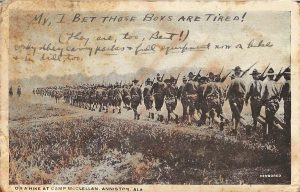 My, I Bet those Boys are Tired!
(They are, too, Bet!)
they carry packs & full equipment on a hike
& in drill too.
CENSORED
ON A HIKE AT CAMP McCLELLAN, ANNISTON, ALA.